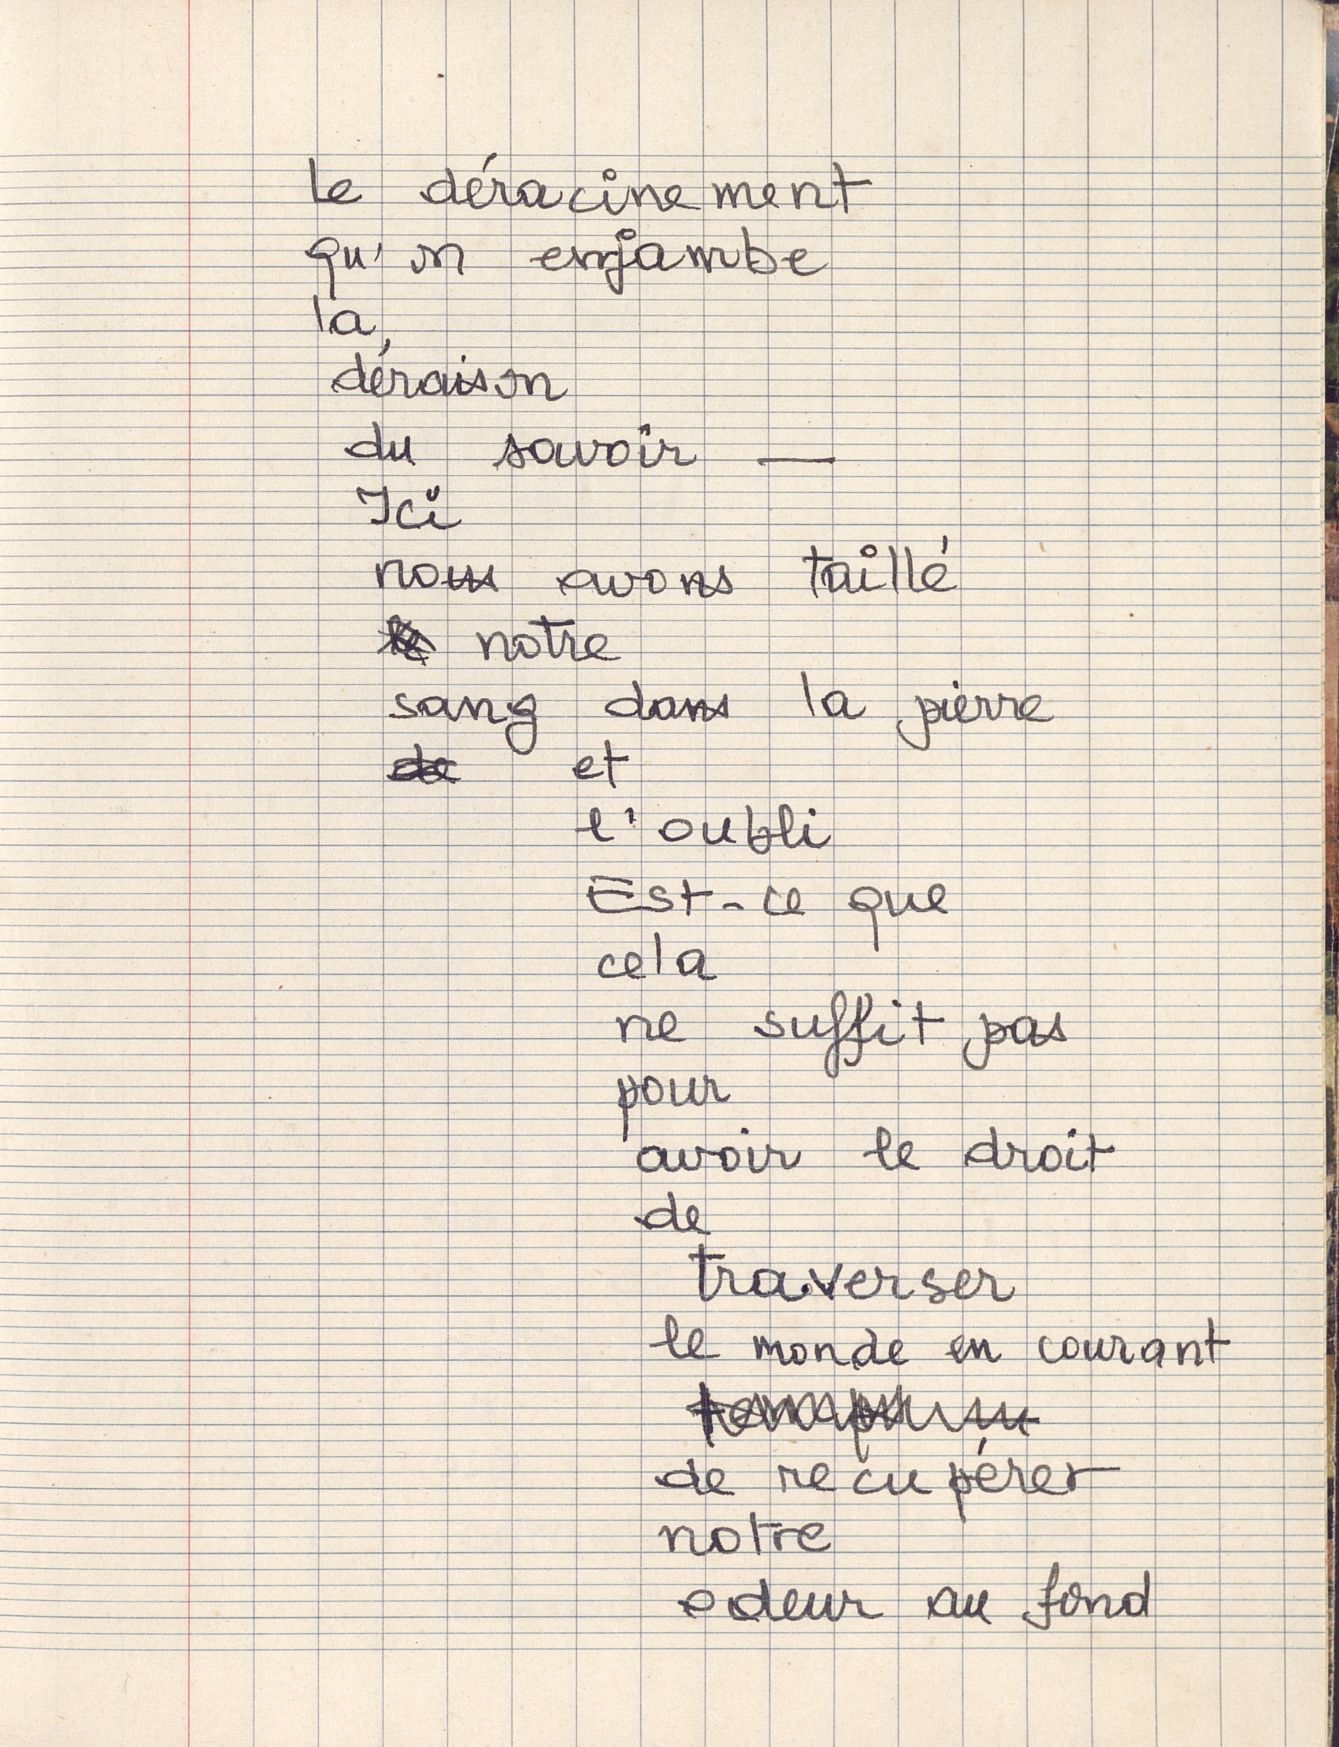 le déracinement
qu'on enjambe
la
déraison
du savoir —
Ici
nous avons taillé
notre
sang dans la pierre
de et
l'oubli
Est-ce que
cela
ne suffit pas
pour
avoir le droit
de
traverser
le monde en courant
de recupérer
notre
odeur au fond